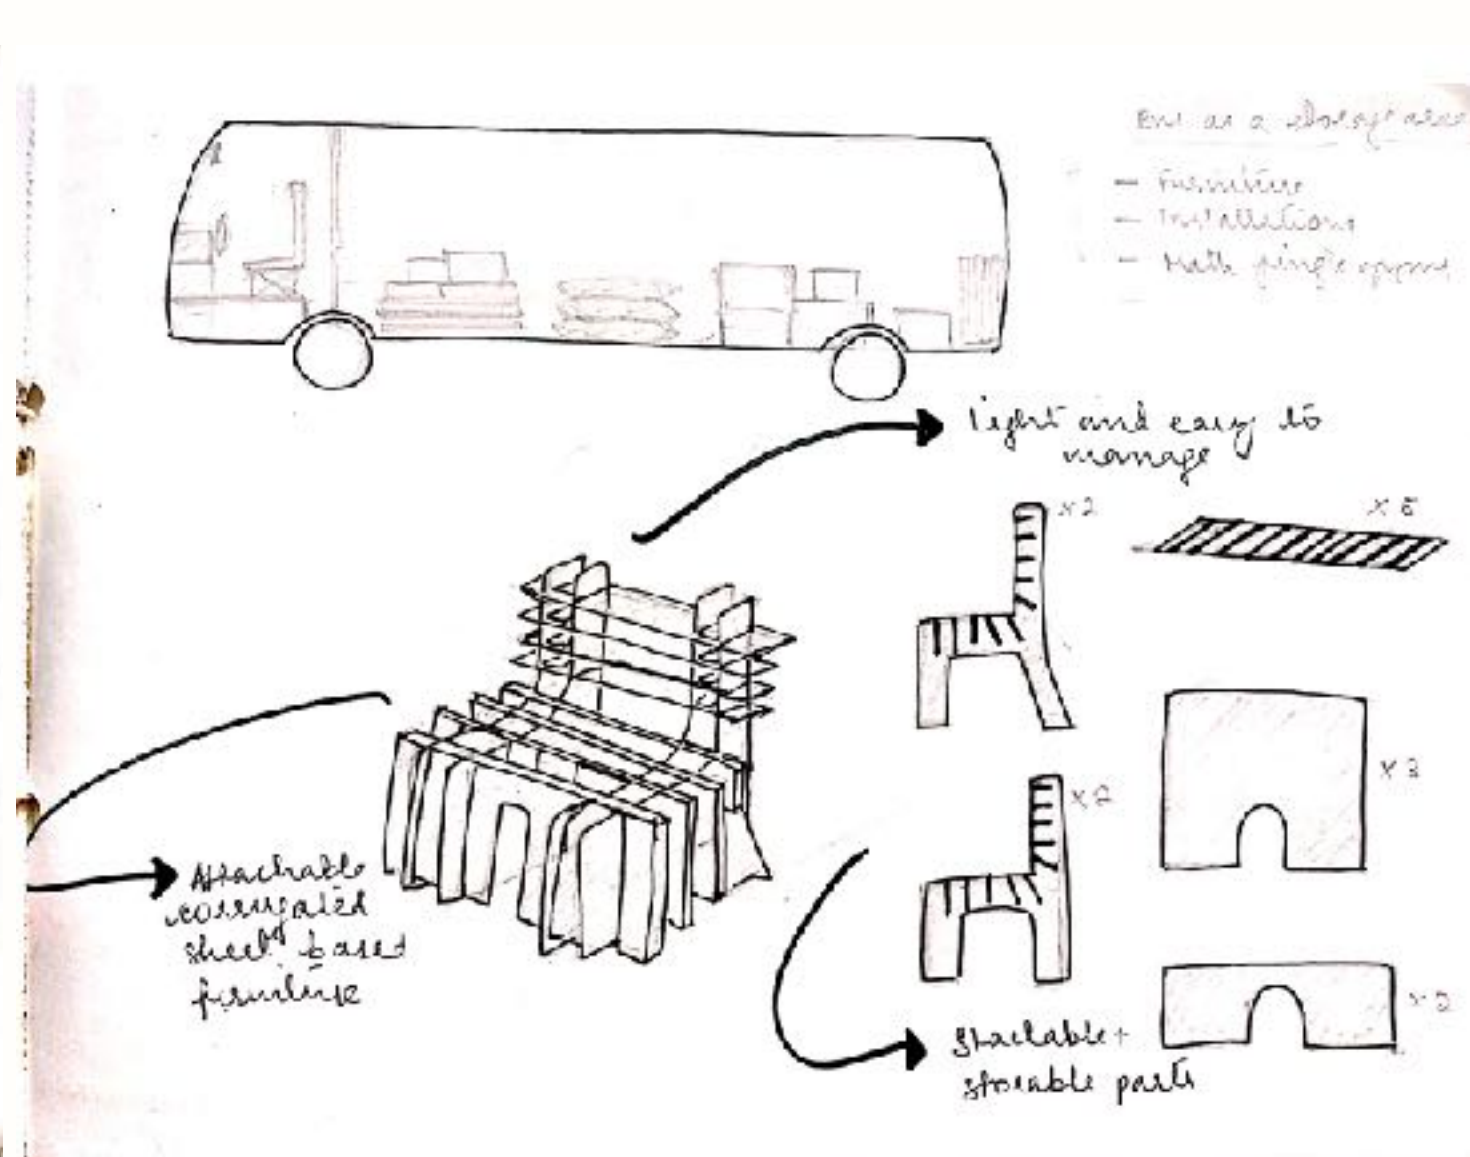 Bus as a storage area
- Furniture
- Installations
-
Light and easy to
manage
x2
x 2
x 3
x 2
Attachable
corrugated
sheet based
furniture
Stackable +
storable parts